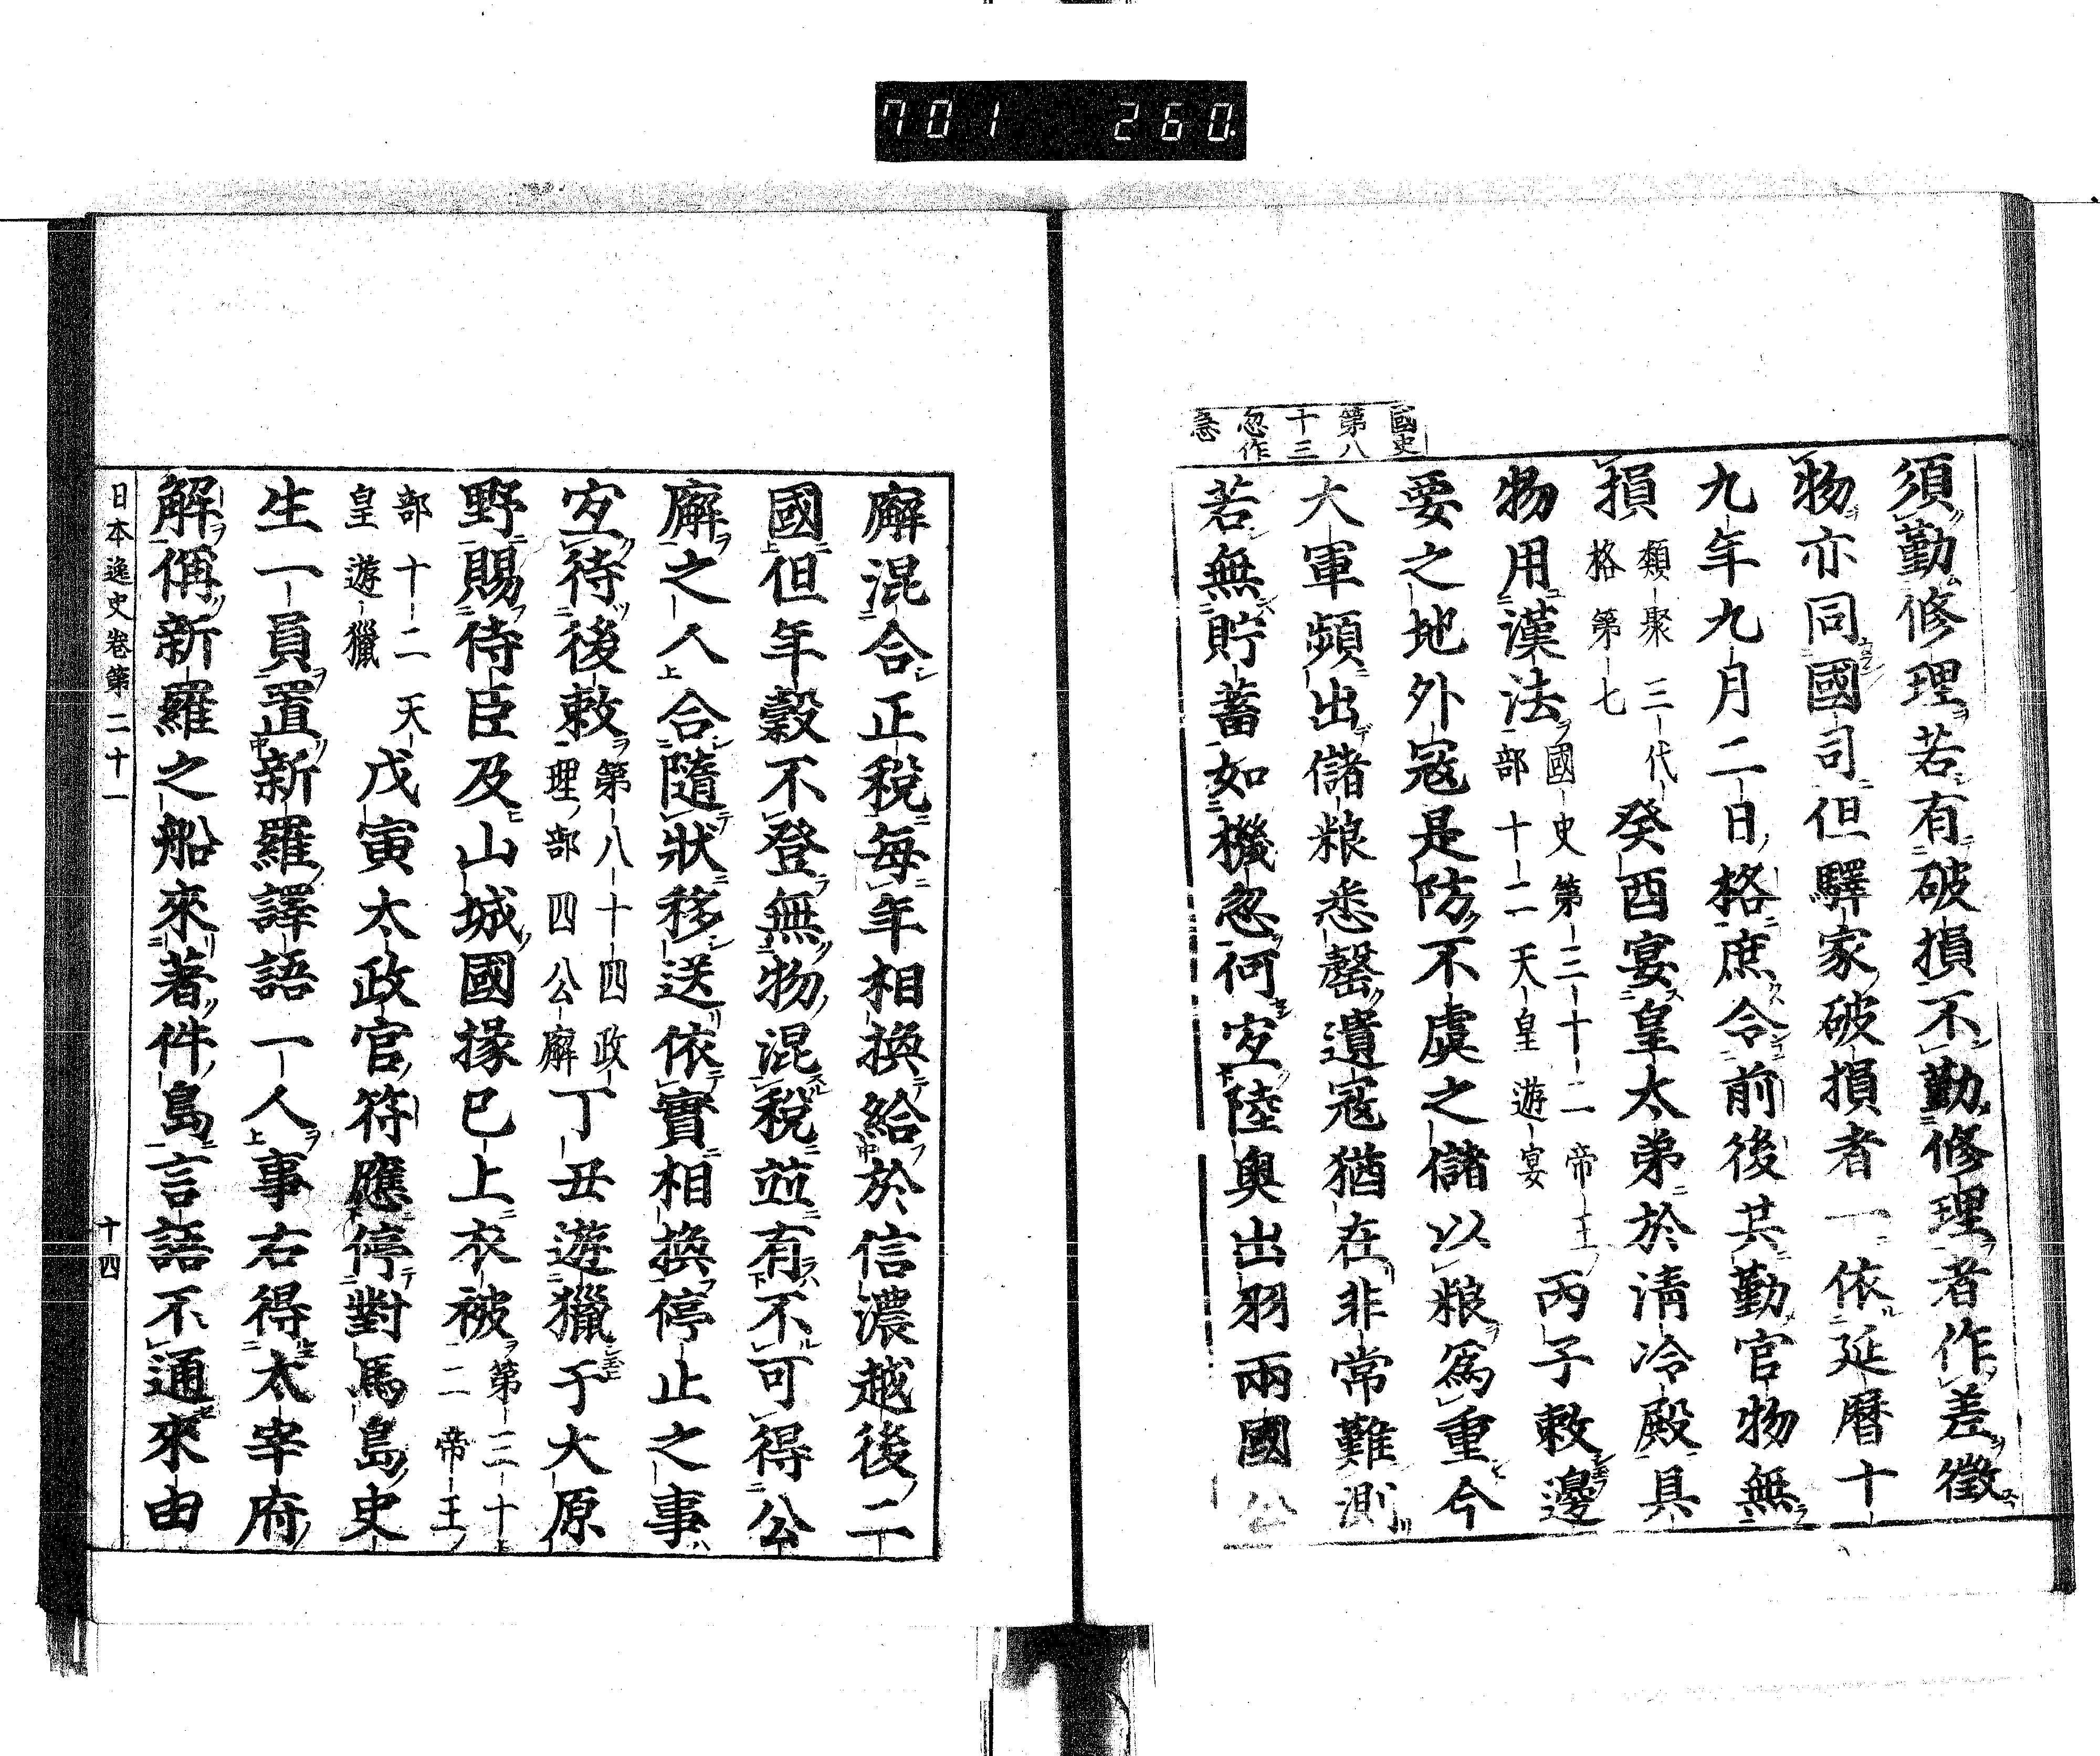 701 260.
國史
第八
十三
忽作
急
須勤修理若有破損不勤修理者作差徵
物亦同國司但驛家破損者一依延曆十
九年九月二日格庶令前後共勤官物無
損類聚三代格第七癸酉宴皇太弟於清冷殿具
物用漢法國史第三十二帝王部十二天皇遊宴丙子敕邊
要之地外寇是防不虞之儲以粮爲重今
大軍頻出儲粮悉罄遺寇猶在非常難測
若無貯蓄如機忽何㝎陸奥出羽兩國公
廨混合正稅每年相換給於信濃越後二
國但年穀不登無物混稅並有不可得公
廨之人合隨狀移送依實相換停止之事
㝎待後敕第八十四政理部四公廨丁丑遊獵于大原
野賜侍臣及山城國掾已上衣被第三十二帝王
部十二天皇遊獵戊寅太政官符應停對馬島史
生一員置新羅譯語一人事右得太宰府
解偁新羅之船來著件島言語不通來由
日本逸史卷第二十一
十四